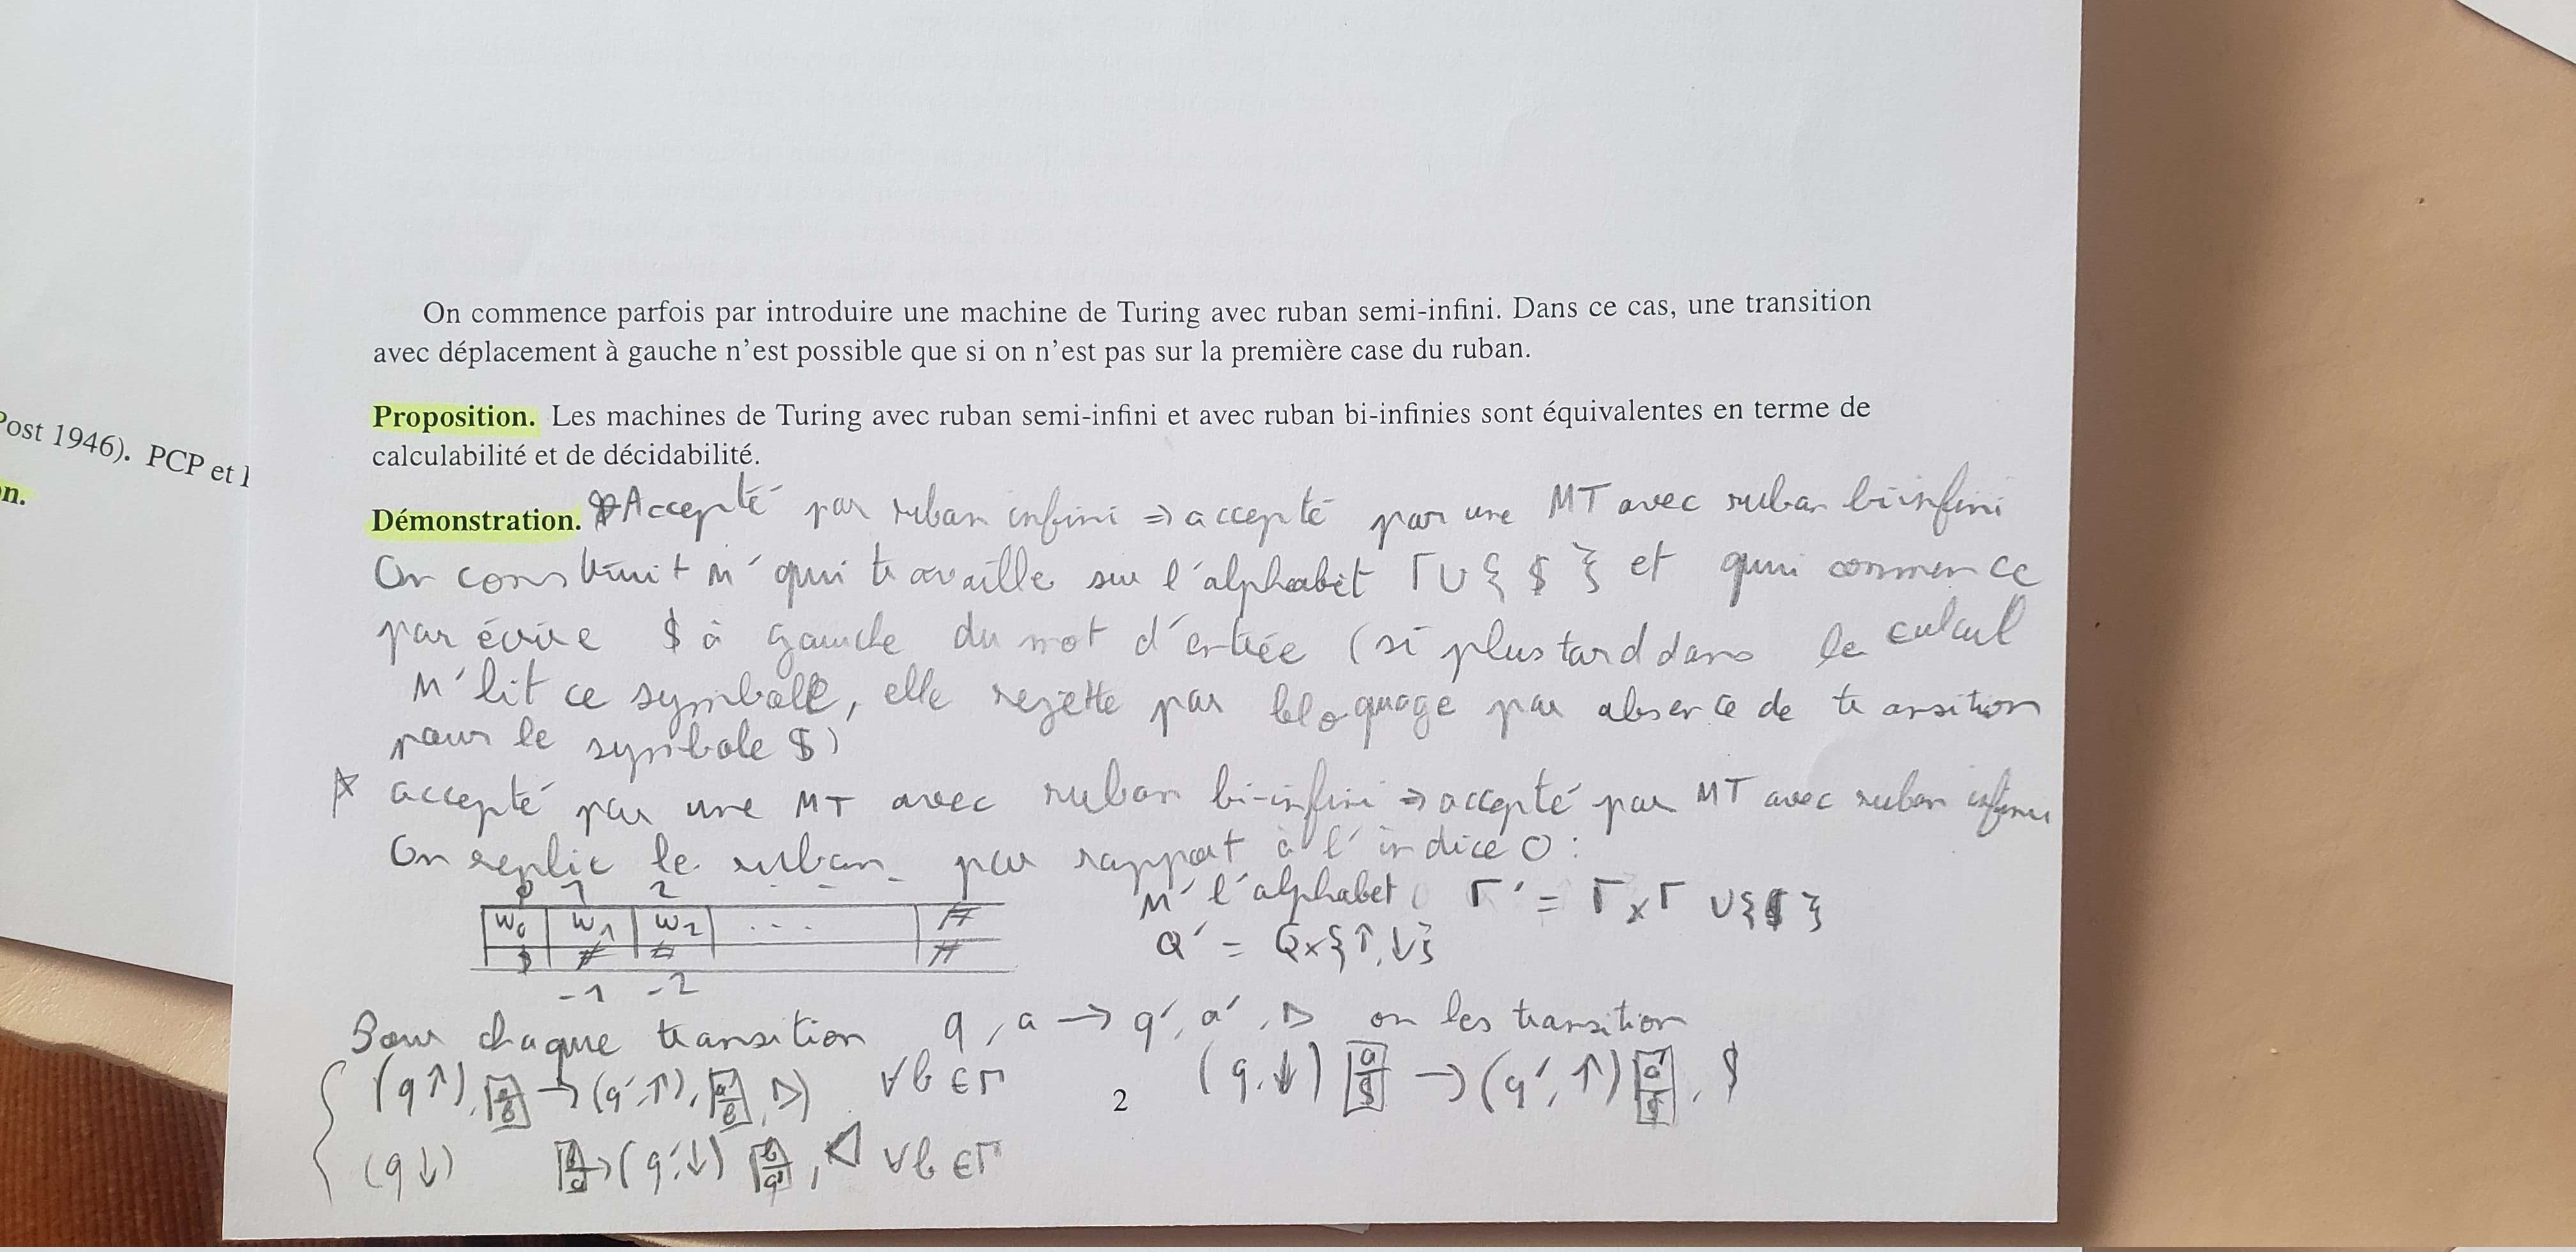 On commence parfois par introduire une machine de Turing avec ruban semi-infini. Dans ce cas, une transition
avec déplacement à gauche n'est possible que si on n'est pas sur la première case du ruban.
Post 1946). PCP et
n.
Proposition. Les machines de Turing avec ruban semi-infini et avec ruban bi-infinies sont équivalentes en terme de
calculabilité et de décidabilité.
Démonstration. * Accepté par ruban infini ⇒ accepté par une MT avec ruban biinfini
On construit M' qui travaille sur l'alphabet Γ∪{$} et qui commence
par écrire $ à gauche du mot d'entrée (si plus tard dans le calcul
M' lit ce symbole, elle rejette par bloquage par absence de transition
pour le symbole $)
* accepté par une MT avec ruban bi-infini ⇒ accepté par MT avec ruban infini
On replie le ruban par rapport à l'indice 0 :
0 1 2 . . .
w₀ w₁ w₂ ... #
$ # # #
-1 -2
M' l'alphabet Γ' = Γ×Γ ∪{$}
Q' = Q×{↑,↓}
Pour chaque transition q, a → q', a', ▷ on les transition
(q↑), [a/b] → (q',↑), [a'/b], ▷) ∀b∈Γ
(q,↓) [a/$] → (q',↑) [a'/$], $
(q↓) [b/a] → (q',↓) [b/a'], ◁ ∀b∈Γ
2